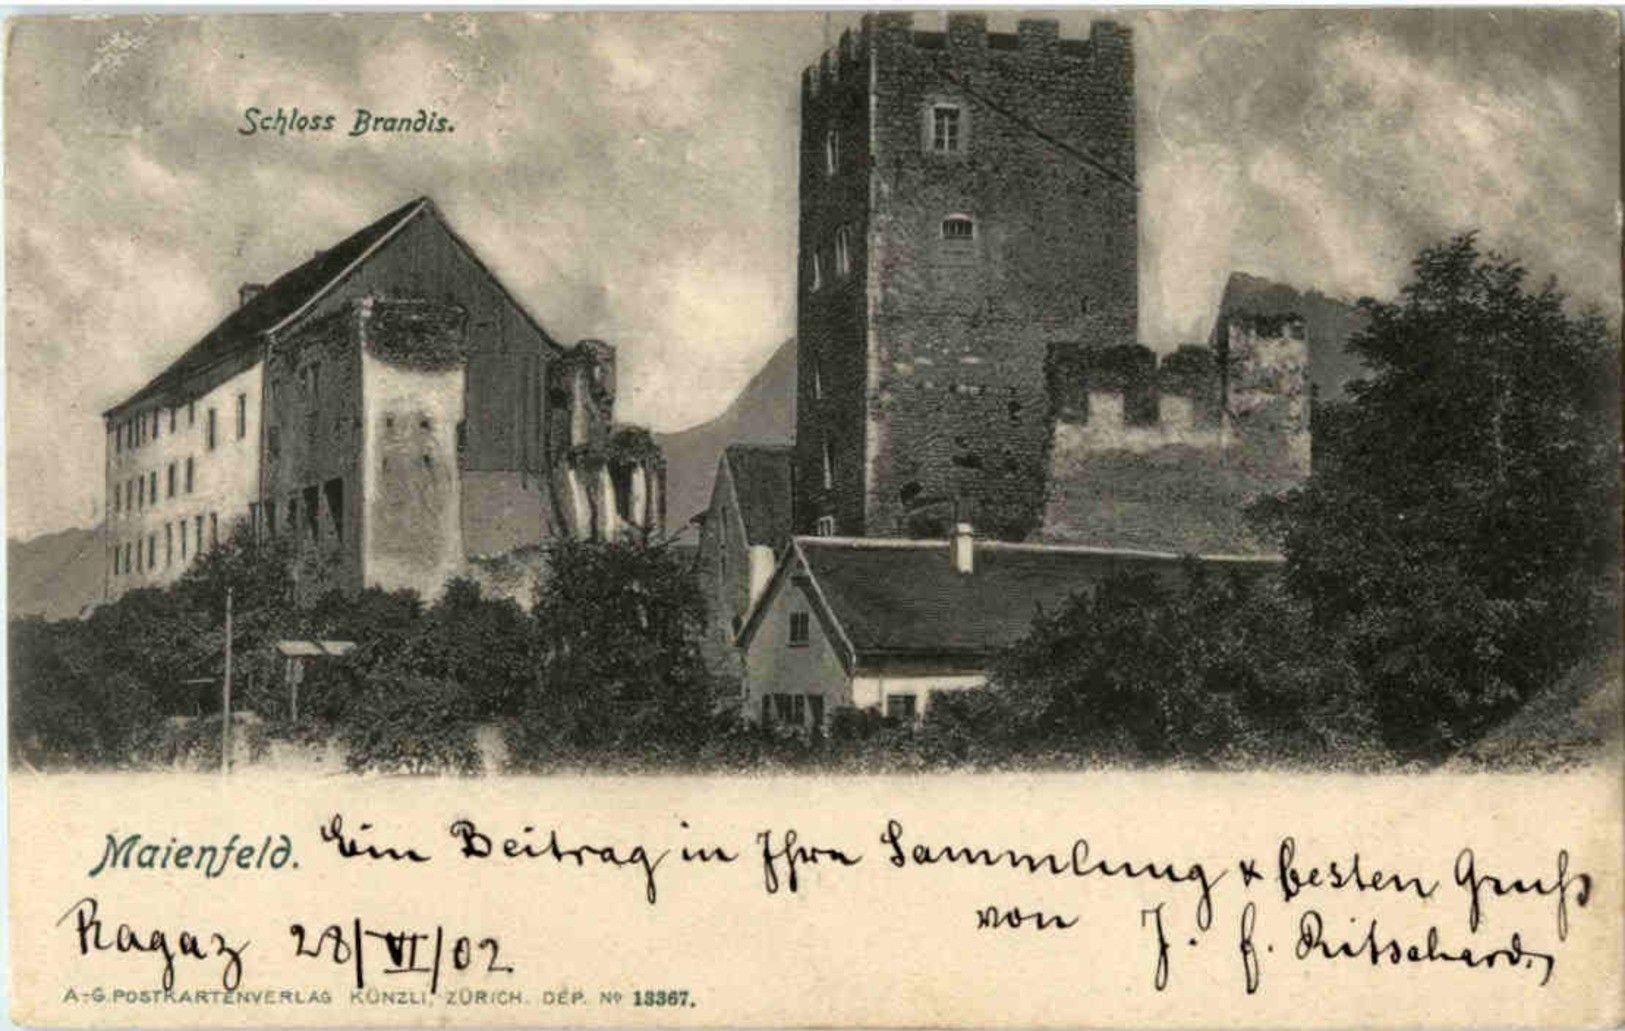 Schloss Brandis.
Maienfeld. Ein Beitrag in Ihre Sammlung & besten Gruß
von J. F. Ritschard,
Ragaz 28/VI/02
A.-G. POSTKARTENVERLAG KÜNZLI, ZÜRICH. DÉP. Nº 13367.